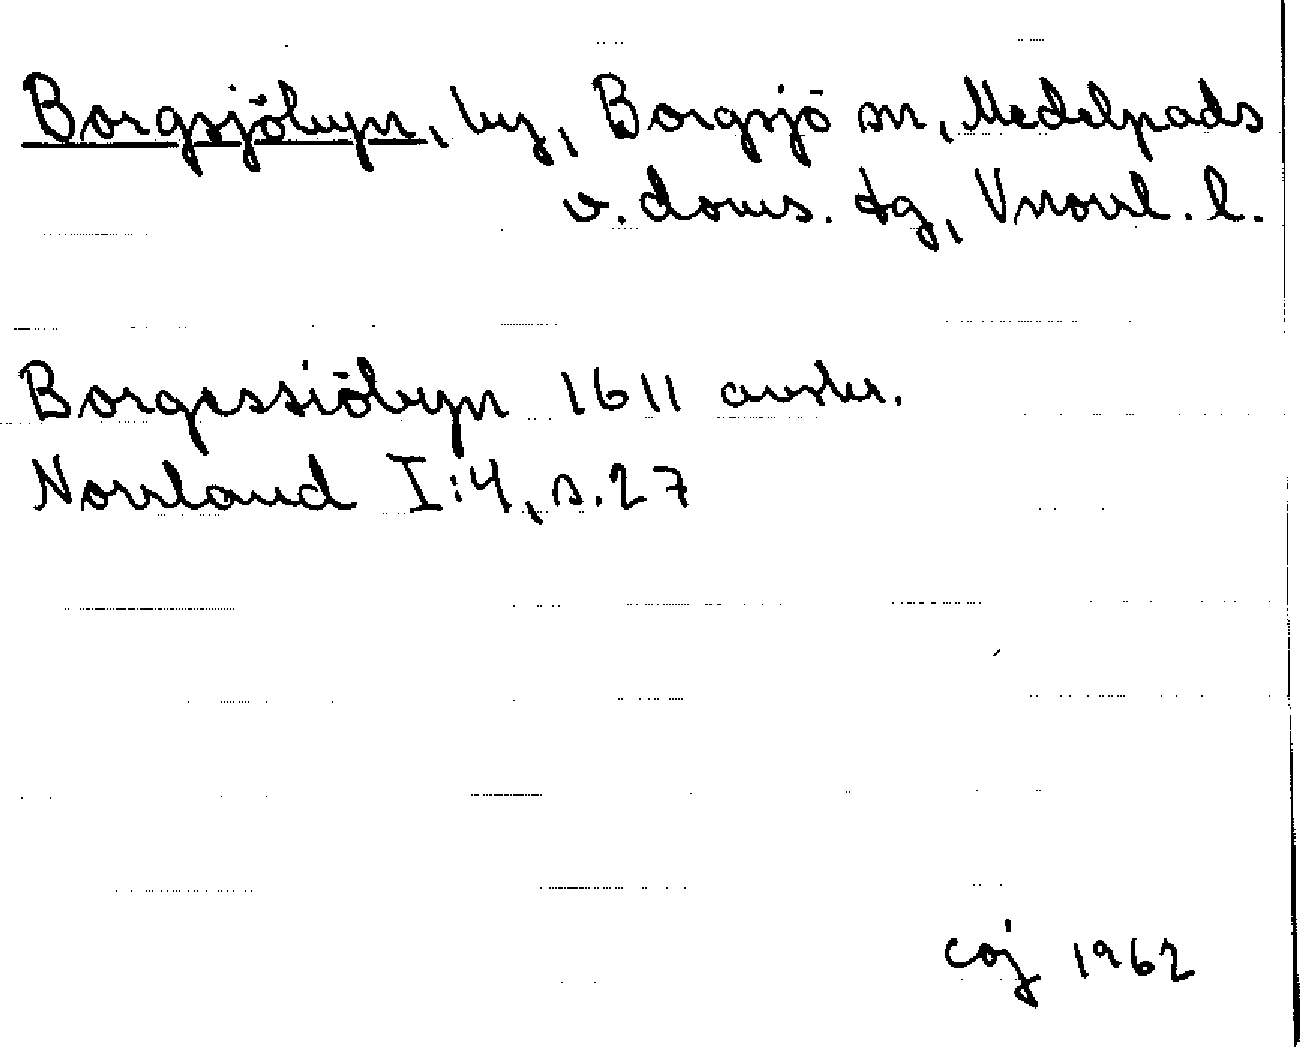 Borgsjöbyn, by, Borgsjö sn, Medelpads
v. doms. tg, Vnorrl. l.
Borgessiöbyn 1611 avskr.
Norrland I:4, s. 27
caj 1962